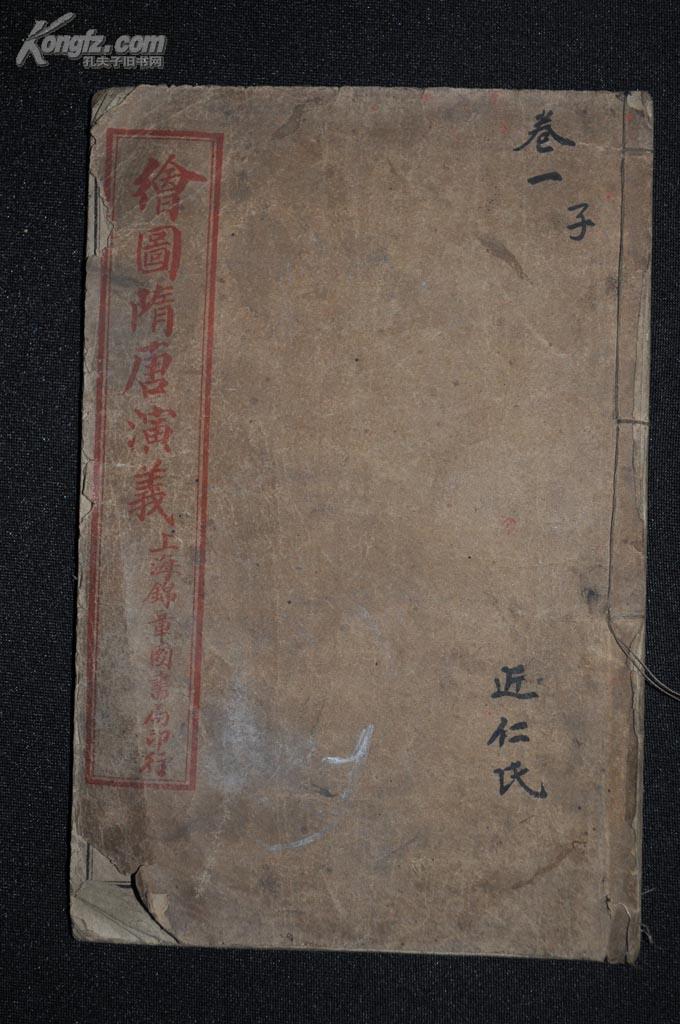 Kongfz.com
孔夫子旧书网
卷一
子
近仁氏
繪圖隋唐演義
上海錦章圖書局印行